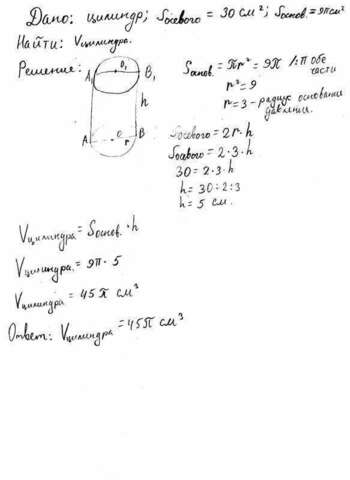 Дано: цилиндр; Sосевого = 30 см²; Sоснов. = 9π см²
Найти: Vцилиндра.
Решение:
O₁
A₁ B₁
h
A O B
r
Sоснов. = πr² = 9π /:π обе
части
r² = 9
r = 3 - радиус основания
Sосевого = 2r · h
Sосевого = 2 · 3 · h
30 = 2 · 3 · h
h = 30 : 2 : 3
h = 5 см.
Vцилиндра = Sоснов. · h
Vцилиндра = 9π · 5
Vцилиндра = 45π см³
Ответ: Vцилиндра = 45π см³